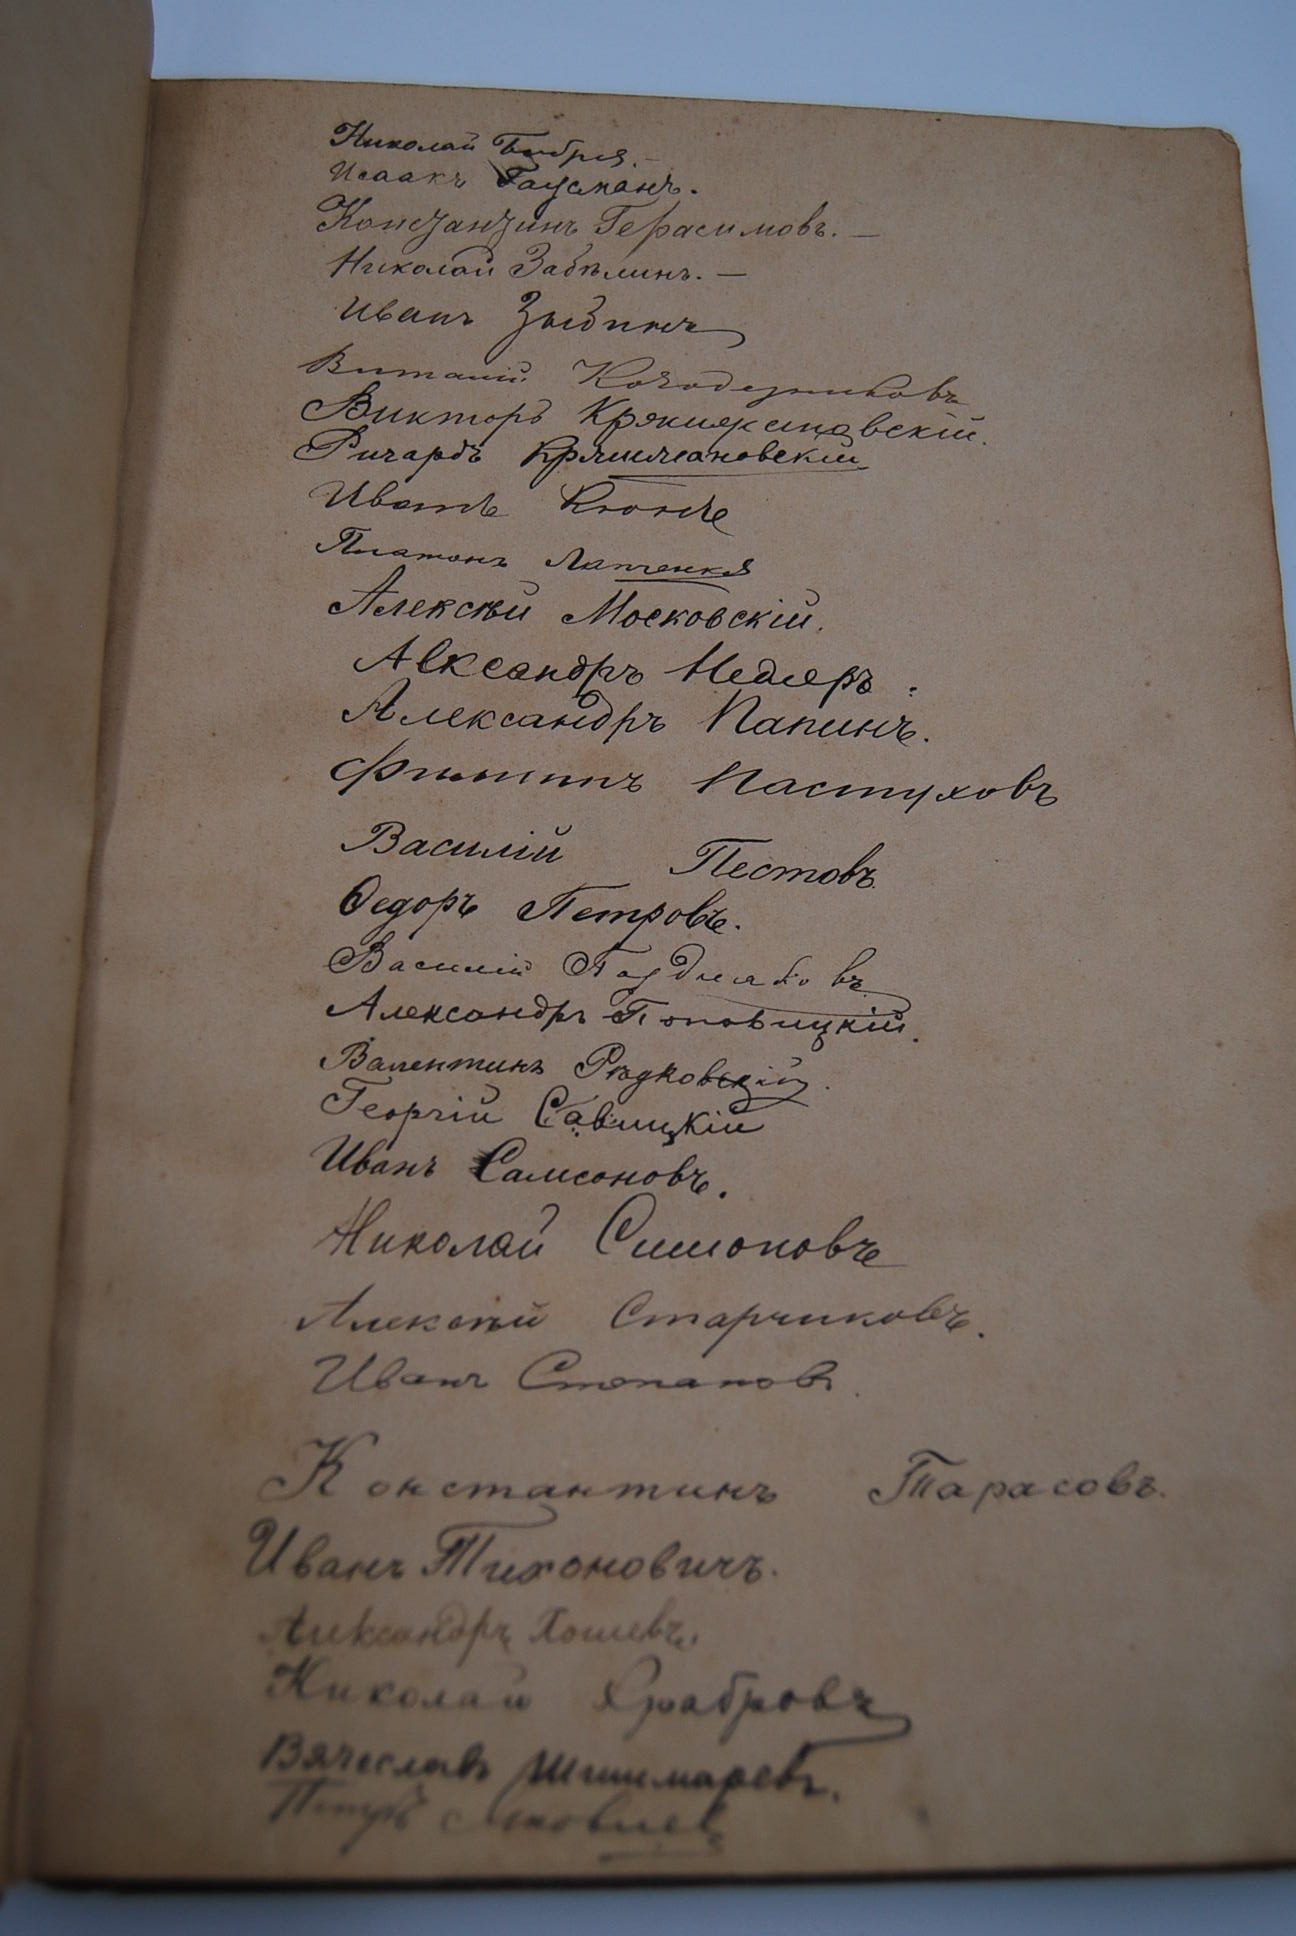 Николай Бобря.—
Исаакъ Гаусманъ.
Константинъ Герасимовъ.—
Николай Забѣлинъ.—
Иванъ Зыбинъ
Виталій
Викторъ
Ричардъ
Иванъ Кюнъ
Платонъ Лапченко
Алексѣй Московскій.
Алксандръ Недлеръ.
Александръ Папинъ.
Филиппъ Пастуховъ
Василій Пестовъ
Ѳедоръ Петровъ.
Василій Поздняковъ
Александръ Поповицкій.
Валентинъ Рѣдковскій.
Георгій Савицкій
Иванъ Самсоновъ.
Николай Симоновъ
Алексѣй Старчиковъ.
Иванъ Степановъ.
Константинъ Тарасовъ.
Иванъ Тихоновичъ.
Александръ Хошевъ.
Николай Храбровъ
Вячеславъ Шишмаревъ.
Петръ Яковлевъ